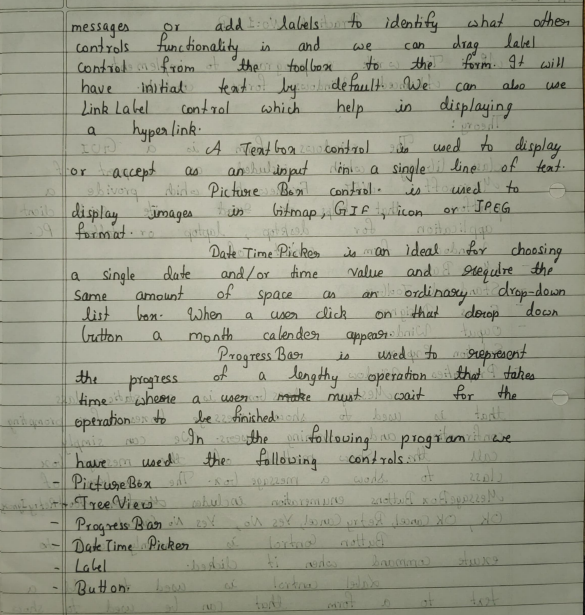 messages or add labels to identify what other
controls functionality is and we can drag label
control from the toolbox to the form. It will
have initial text by default. We can also use
Link Label control which help in displaying
a hyperlink.
A Textbox control is used to display
or accept as an input in a single line of text.
Picture Box control. is used to
display images in bitmap, GIF, icon or JPEG
format.
Date Time Picker is an ideal for choosing
a single date and/or time value and require the
same amount of space as an ordinary drop-down
list box. When a user click on that drop down
button a month calender appear.
Progress Bar is used to represent
the progress of a lengthy operation that takes
time where a user must wait for the
operation to be finished.
In the following program we
have used the following controls.
- Picture Box
- Tree View
- Progress Bar
- Date Time Picker
- Label
- Button.